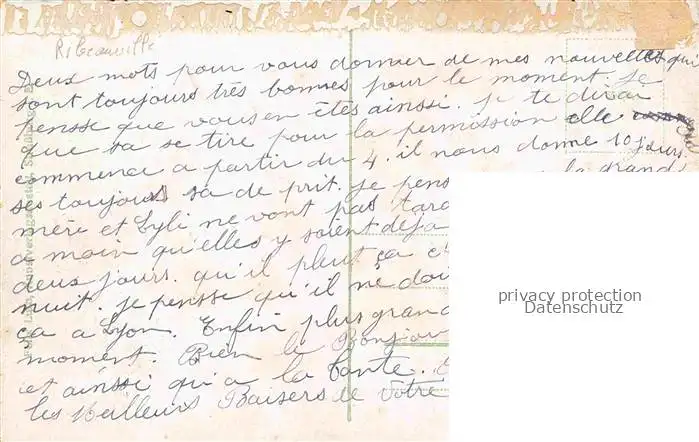 Ribeauville
Deux mots pour vous donner de mes nouvelles qui
sont toujours très bonnes pour le moment. Je
pensse que vous en êtes ainssi. Je te dirai
que sa se tire pour la permission elle
commence a partir du 4. il nous donne 10 jours
ses toujours sa de prit. Je pens la grand
mère et Lyli ne vont pas tard
a moin qu'elles y soient déja
deux jours. qu'il pleut ça
nuit. Je pensse qu'il ne doi
ça a Lyon. Enfin plus grand
moment. Bien le Bonjour
et ainssi qu'a la tante.
les Meilleurs Baisers de Votre
privacy protection
Datenschutz